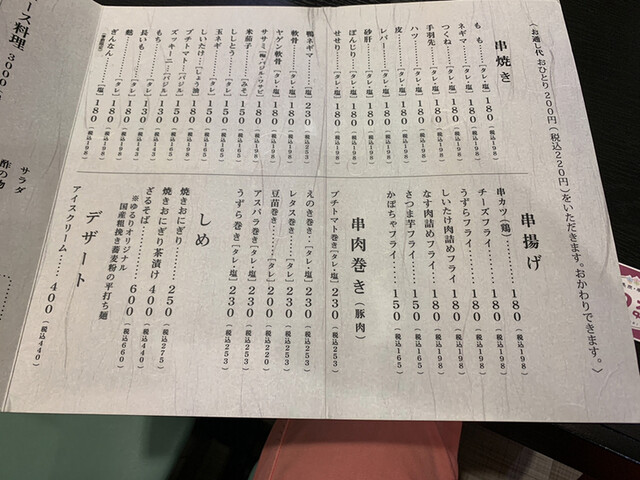 〈お通し代 おひとり200円(税込220円)をいただきます。おかわりできます。〉
串焼き
もも…[タレ・塩] 180(税込198)
ネギマ…[タレ・塩] 180(税込198)
つくね…[タレ・塩] 180(税込198)
手羽先…[タレ・塩] 180(税込198)
ハツ…[タレ・塩] 180(税込198)
皮…[タレ・塩] 180(税込198)
レバー…[タレ・塩] 180(税込198)
砂肝…[タレ・塩] 180(税込198)
ぼんじり…[タレ・塩] 180(税込198)
せせり…[タレ・塩] 180(税込198)
鴨ネギマ…[タレ・塩] 230(税込253)
軟骨…[タレ・塩] 180(税込198)
ヤゲン軟骨…[タレ・塩] 180(税込198)
ササミ(梅・バジル・ワサビ) 180(税込198)
米茄子…[みそ] 180(税込198)
ししとう…[タレ・塩] 150(税込165)
玉ネギ…[タレ・塩] 150(税込165)
しいたけ…[しょう油] 180(税込198)
プチトマト…[バジル] 150(税込165)
ズッキーニ…[バジル] 150(税込165)
もち…[タレ] 130
長いも…[タレ・塩] 150(税込165)
麩…[タレ・塩] 130
ぎんなん…[塩] 180(税込198)
串揚げ
串カツ(鶏)…180(税込198)
チーズフライ…180(税込198)
うずらフライ…180(税込198)
しいたけ肉詰めフライ 180(税込198)
なす肉詰めフライ…180(税込198)
さつま芋フライ…150(税込165)
かぼちゃフライ…150(税込165)
串肉巻き(豚肉)
プチトマト巻き[タレ・塩] 230(税込253)
えのき巻き…[タレ・塩] 230(税込253)
レタス巻き…[タレ・塩] 230(税込253)
豆苗巻き…[タレ・塩] 200(税込220)
アスパラ巻き[タレ・塩] 230(税込253)
うずら巻き[タレ・塩] 230(税込253)
しめ
焼きおにぎり…250(税込275)
焼きおにぎり茶漬け 400(税込440)
ざるそば…600(税込660)
※ゆるりオリジナル
国産粗挽き蕎麦粉の平打ち麺
デザート
アイスクリーム…400(税込440)
ース料理 3000
サラダ
酢の物